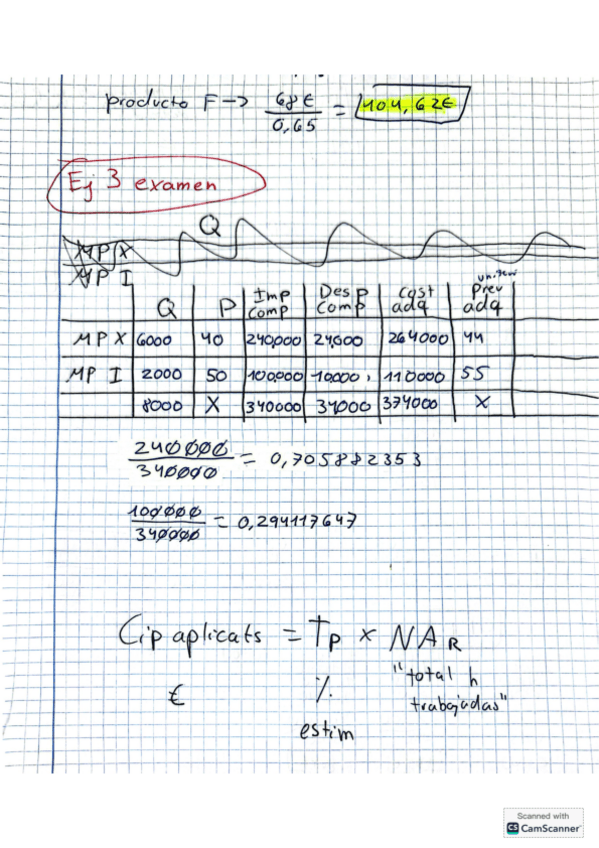 producto F → 68€ / 0,65 = 104,62€
Ej 3 examen
Q
MP X
MP I
Q P Imp comp Desp comp cost adq unitari preu adq
MP X 6000 40 240,000 24,000 264000 44
MP I 2000 50 100,000 10,000, 110000 55
8000 X 340000 34000 374000 X
240000 / 340000 = 0,705882353
100000 / 340000 = 0,294117647
Cip aplicats = Tp x NAR
€ % "total h
trabajadas"
estim
Scanned with
CS CamScanner